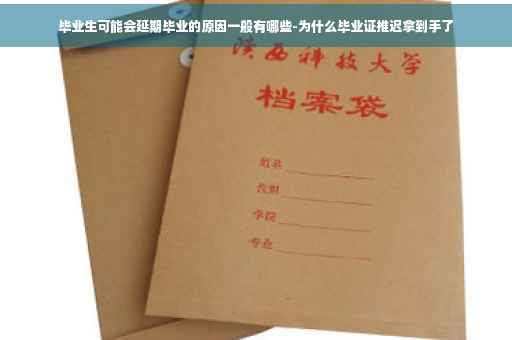 毕业生可能会延期毕业的原因一般有哪些-为什么毕业证推迟拿到手了
陕西科技大学
档案袋
姓名
学院
专业